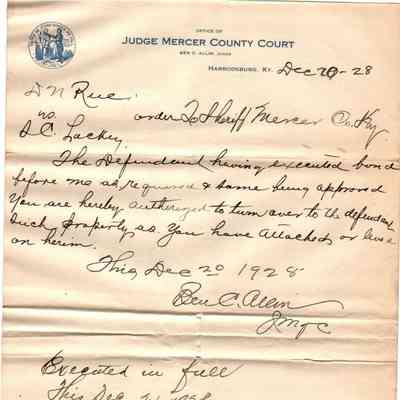 OFFICE OF
JUDGE MERCER COUNTY COURT
BEN C. ALLIN, JUDGE
HARRODSBURG, KY. Dec 20-28
D N Rue
vs. order To Sheriff Mercer Co. Ky
D C. Lackey
The Defendant having executed bond
before me as required & same being approved
You are hereby authorized to turn over to the defendant
such property as you have attached or
on herein.
This Dec 20 1928
Ben C. Allin
J M C C
Executed in full
This Dec 21 1928